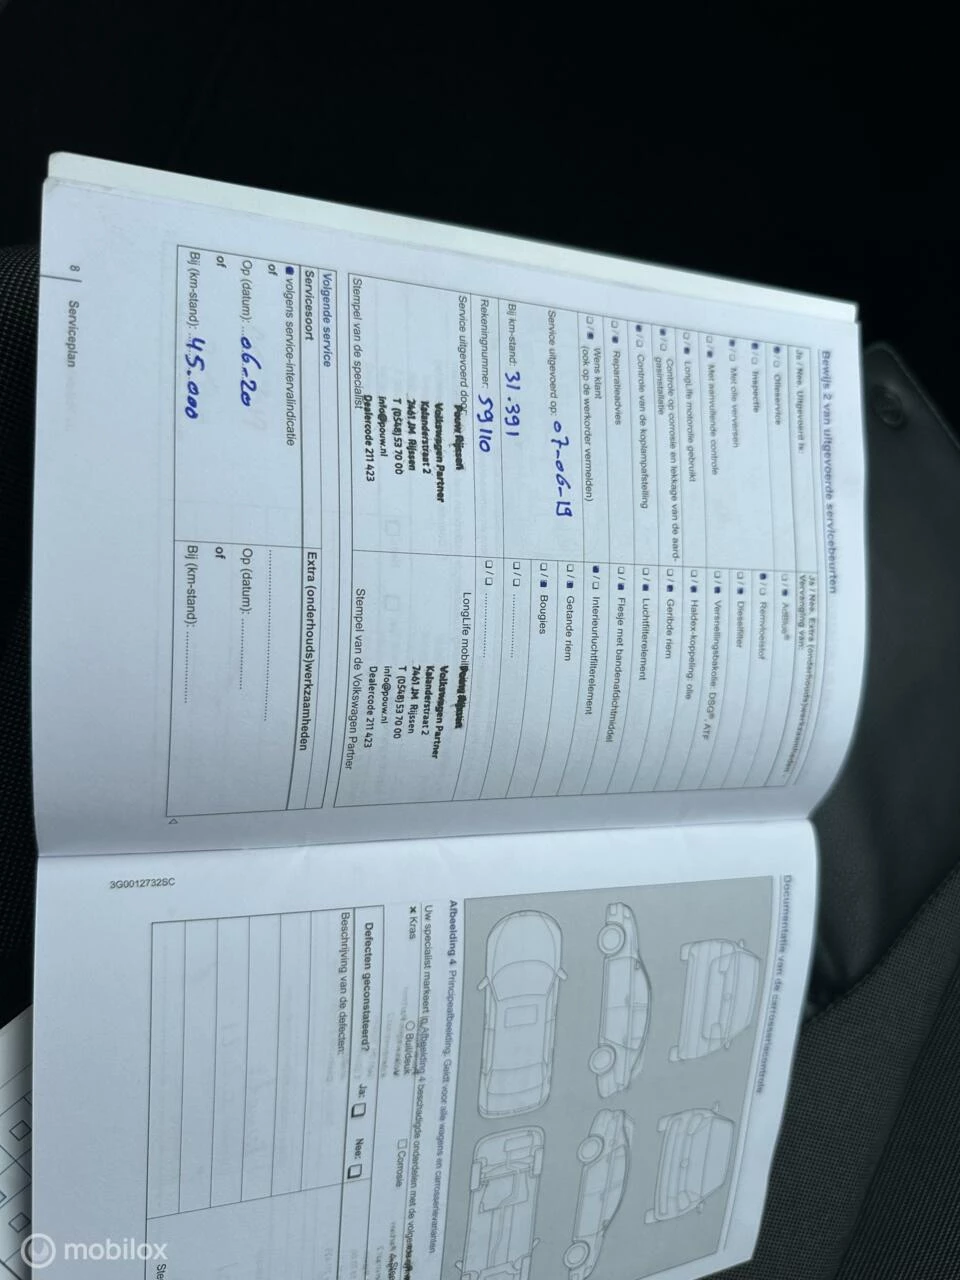 Bewijs 2 van uitgevoerde servicebeurten
Ja / Nee. Uitgevoerd is:
Olieservice
Inspectie
Met olie verversen
Met aanvullende controle
LongLife motorolie gebruikt
Controle op corrosie en lekkage van de aard-
gasinstallatie
Controle van de koplampafstelling
Reparatieadvies
Wens klant
(ook op de werkorder vermelden)
Service uitgevoerd op: 07-06-19
Bij km-stand: 31.391
Rekeningnummer: 59110
Service uitgevoerd door:
Pouw Rijssen
Volkswagen Partner
Kalanderstraat 2
7461 JM Rijssen
T (0548) 53 70 00
info@pouw.nl
Dealercode 211 423
Stempel van de specialist
Ja / Nee. Extra (onderhouds)werkzaamheden.
Vervanging van:
AdBlue®
Remvloeistof
Dieselfilter
Versnellingsbakolie: DSG®, ATF
Haldex-koppeling: olie
Geribde riem
Luchtfilterelement
Flesje met bandenafdichtmiddel
Interieurluchtfilterelement
Getande riem
Bougies
LongLife mobil
Volkswagen Partner
Kalanderstraat 2
7461 JM Rijssen
T (0548) 53 70 00
info@pouw.nl
Dealercode 211 423
Stempel van de Volkswagen Partner
Volgende service
Servicesoort
volgens service-intervalindicatie
of
Op (datum): 06-20
of
Bij (km-stand): 45.000
Extra (onderhouds)werkzaamheden
Op (datum):
of
Bij (km-stand):
8 | Serviceplan
Documentatie van de carrosseriecontrole
Afbeelding 4 Principeafbeelding: Geldt voor alle wagens en carrosserievarianten
Uw specialist markeert in Afbeelding 4 beschadigde onderdelen met de
× Kras
Buil/deuk
Corrosie
Defecten geconstateerd? Ja: Nee:
Beschrijving van de defecten:
3G0012732SC
mobilox